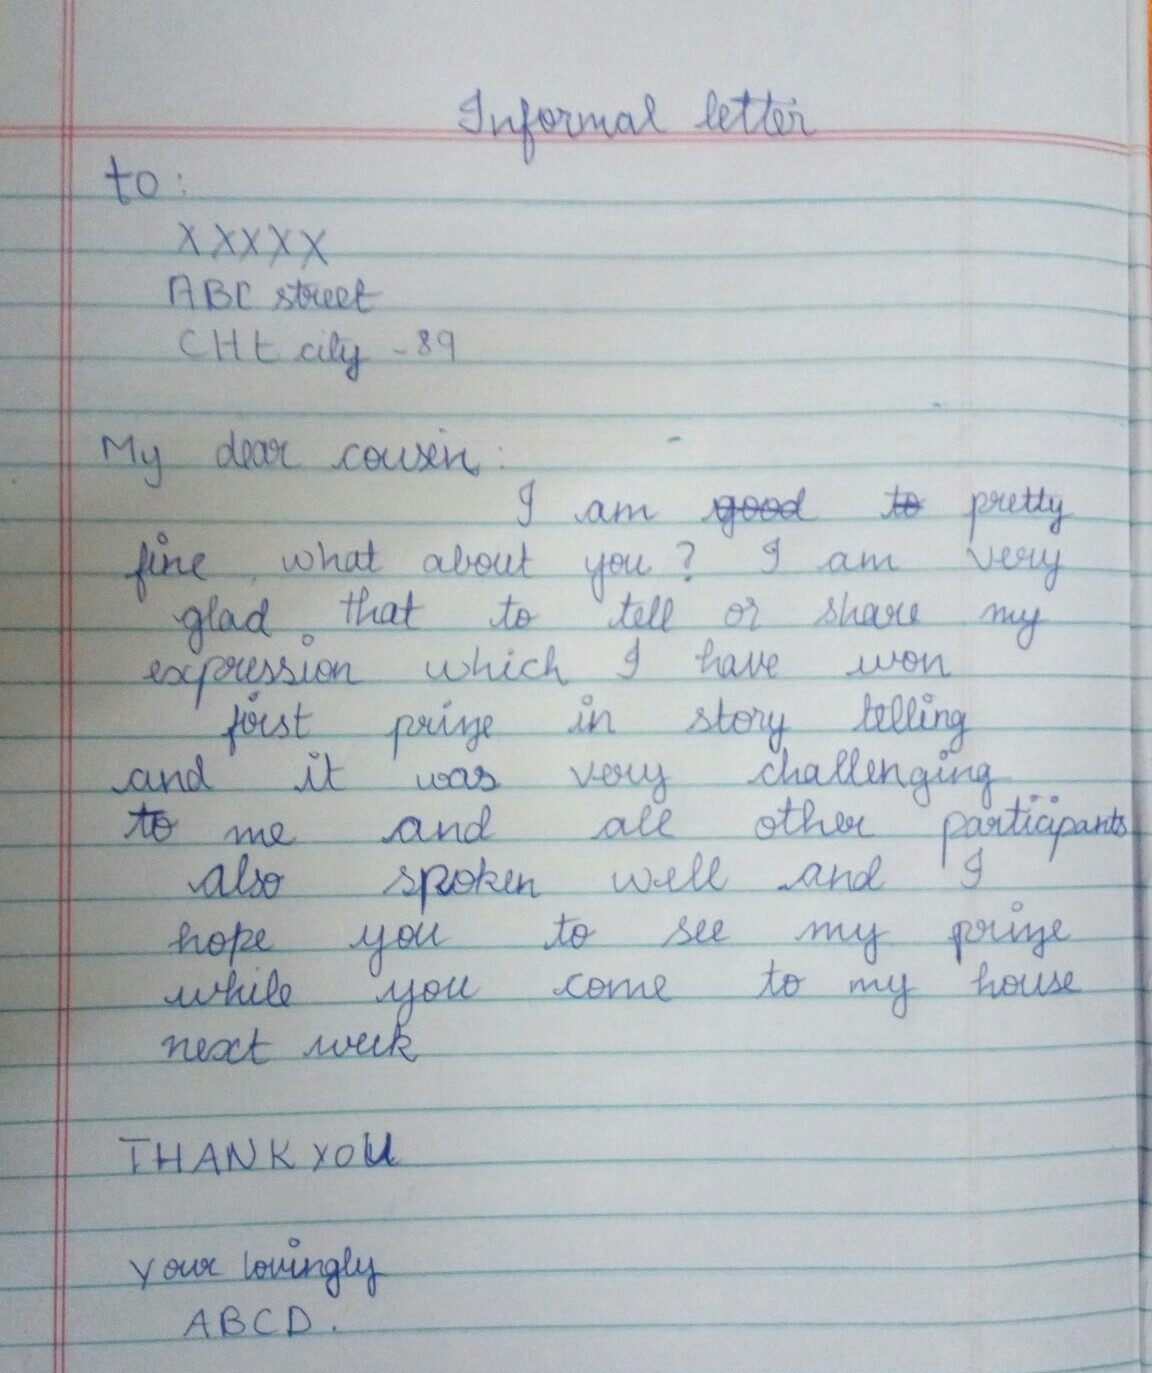 Informal letter
to:
XXXXX
ABC street
CHt city - 89
My dear cousin:
I am good to pretty
fine, what about you? I am very
glad that to tell or share my
expression which I have won
first prize in story telling
and it was very challenging
to me and all other participants
also spoken well and I
hope you to see my prize
while you come to my house
next week
THANK YOU
Your lovingly
ABCD.